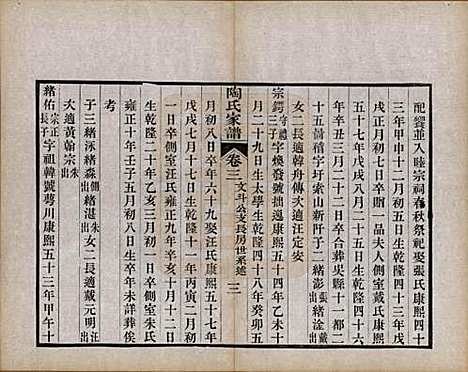 配鐸並入睦宗祠春秋祭祀娶張氏康熙四十
三年甲申十二月初五日生乾隆四十三年戊
戌正月初七日卒贈一品夫人側室戴氏康熙
五十七年戊戌八月二十七日生乾隆四十六
年辛丑三月二十二日卒合葬吳縣十一都二
十五圖玉遮字圩索山新阡子二緒彭張出緒淦戴出
女二長適韓舟傳次適汪定安
宗鍔守禮三子字煥發號拙逸康熙五十四年乙未十
月二十九日生太學生乾隆四十八年癸卯五
陶氏家譜
卷三
文斗公支長房世系述
三
月初八日卒年六十九娶汪氏康熙五十七年
戊戌七月初八日生乾隆十一年丙寅二月初
一日卒側室汪氏雍正九年辛亥十月十二日
生乾隆二十年乙亥三月初一日卒側室朱氏
雍正十年壬子五月初八日生卒年未詳葬俟
考
子三緒泳緒森側汪出緒湛朱出女二長適戴元明汪出
次適黃翰宗朱出
緒佑宗正長子字祖韓號蕚川康熙五十三年甲午十